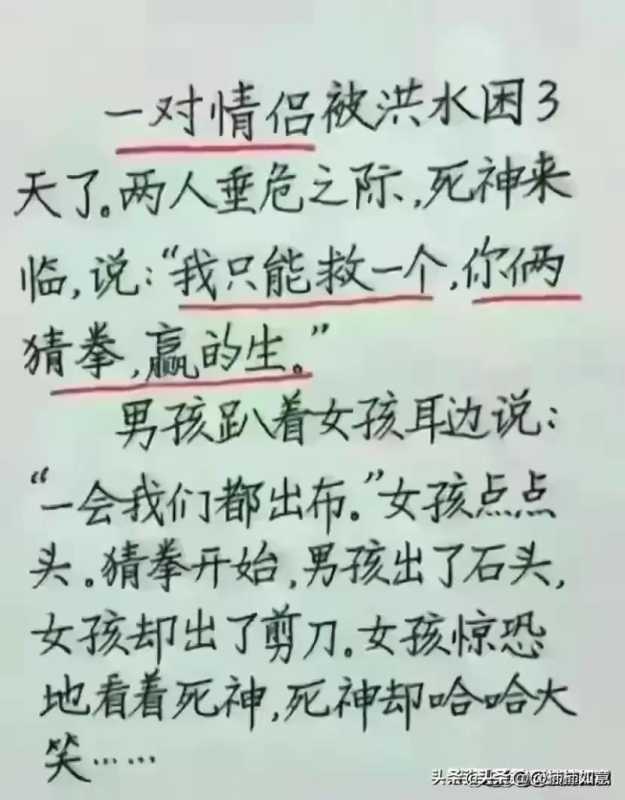 一对情侣被洪水困3
天了。两人垂危之际,死神来
临,说:“我只能救一个,你俩
猜拳,赢的生。”
男孩趴着女孩耳边说:
“一会我们都出布。”女孩点点
头。猜拳开始,男孩出了石头,
女孩却出了剪刀。女孩惊恐
地看着死神,死神却哈哈大
笑……